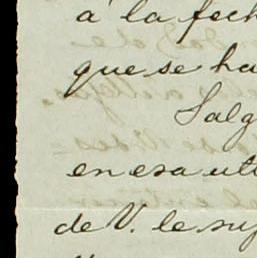 á la fech
que se ha
Salg
en esa ult
de V. le sup